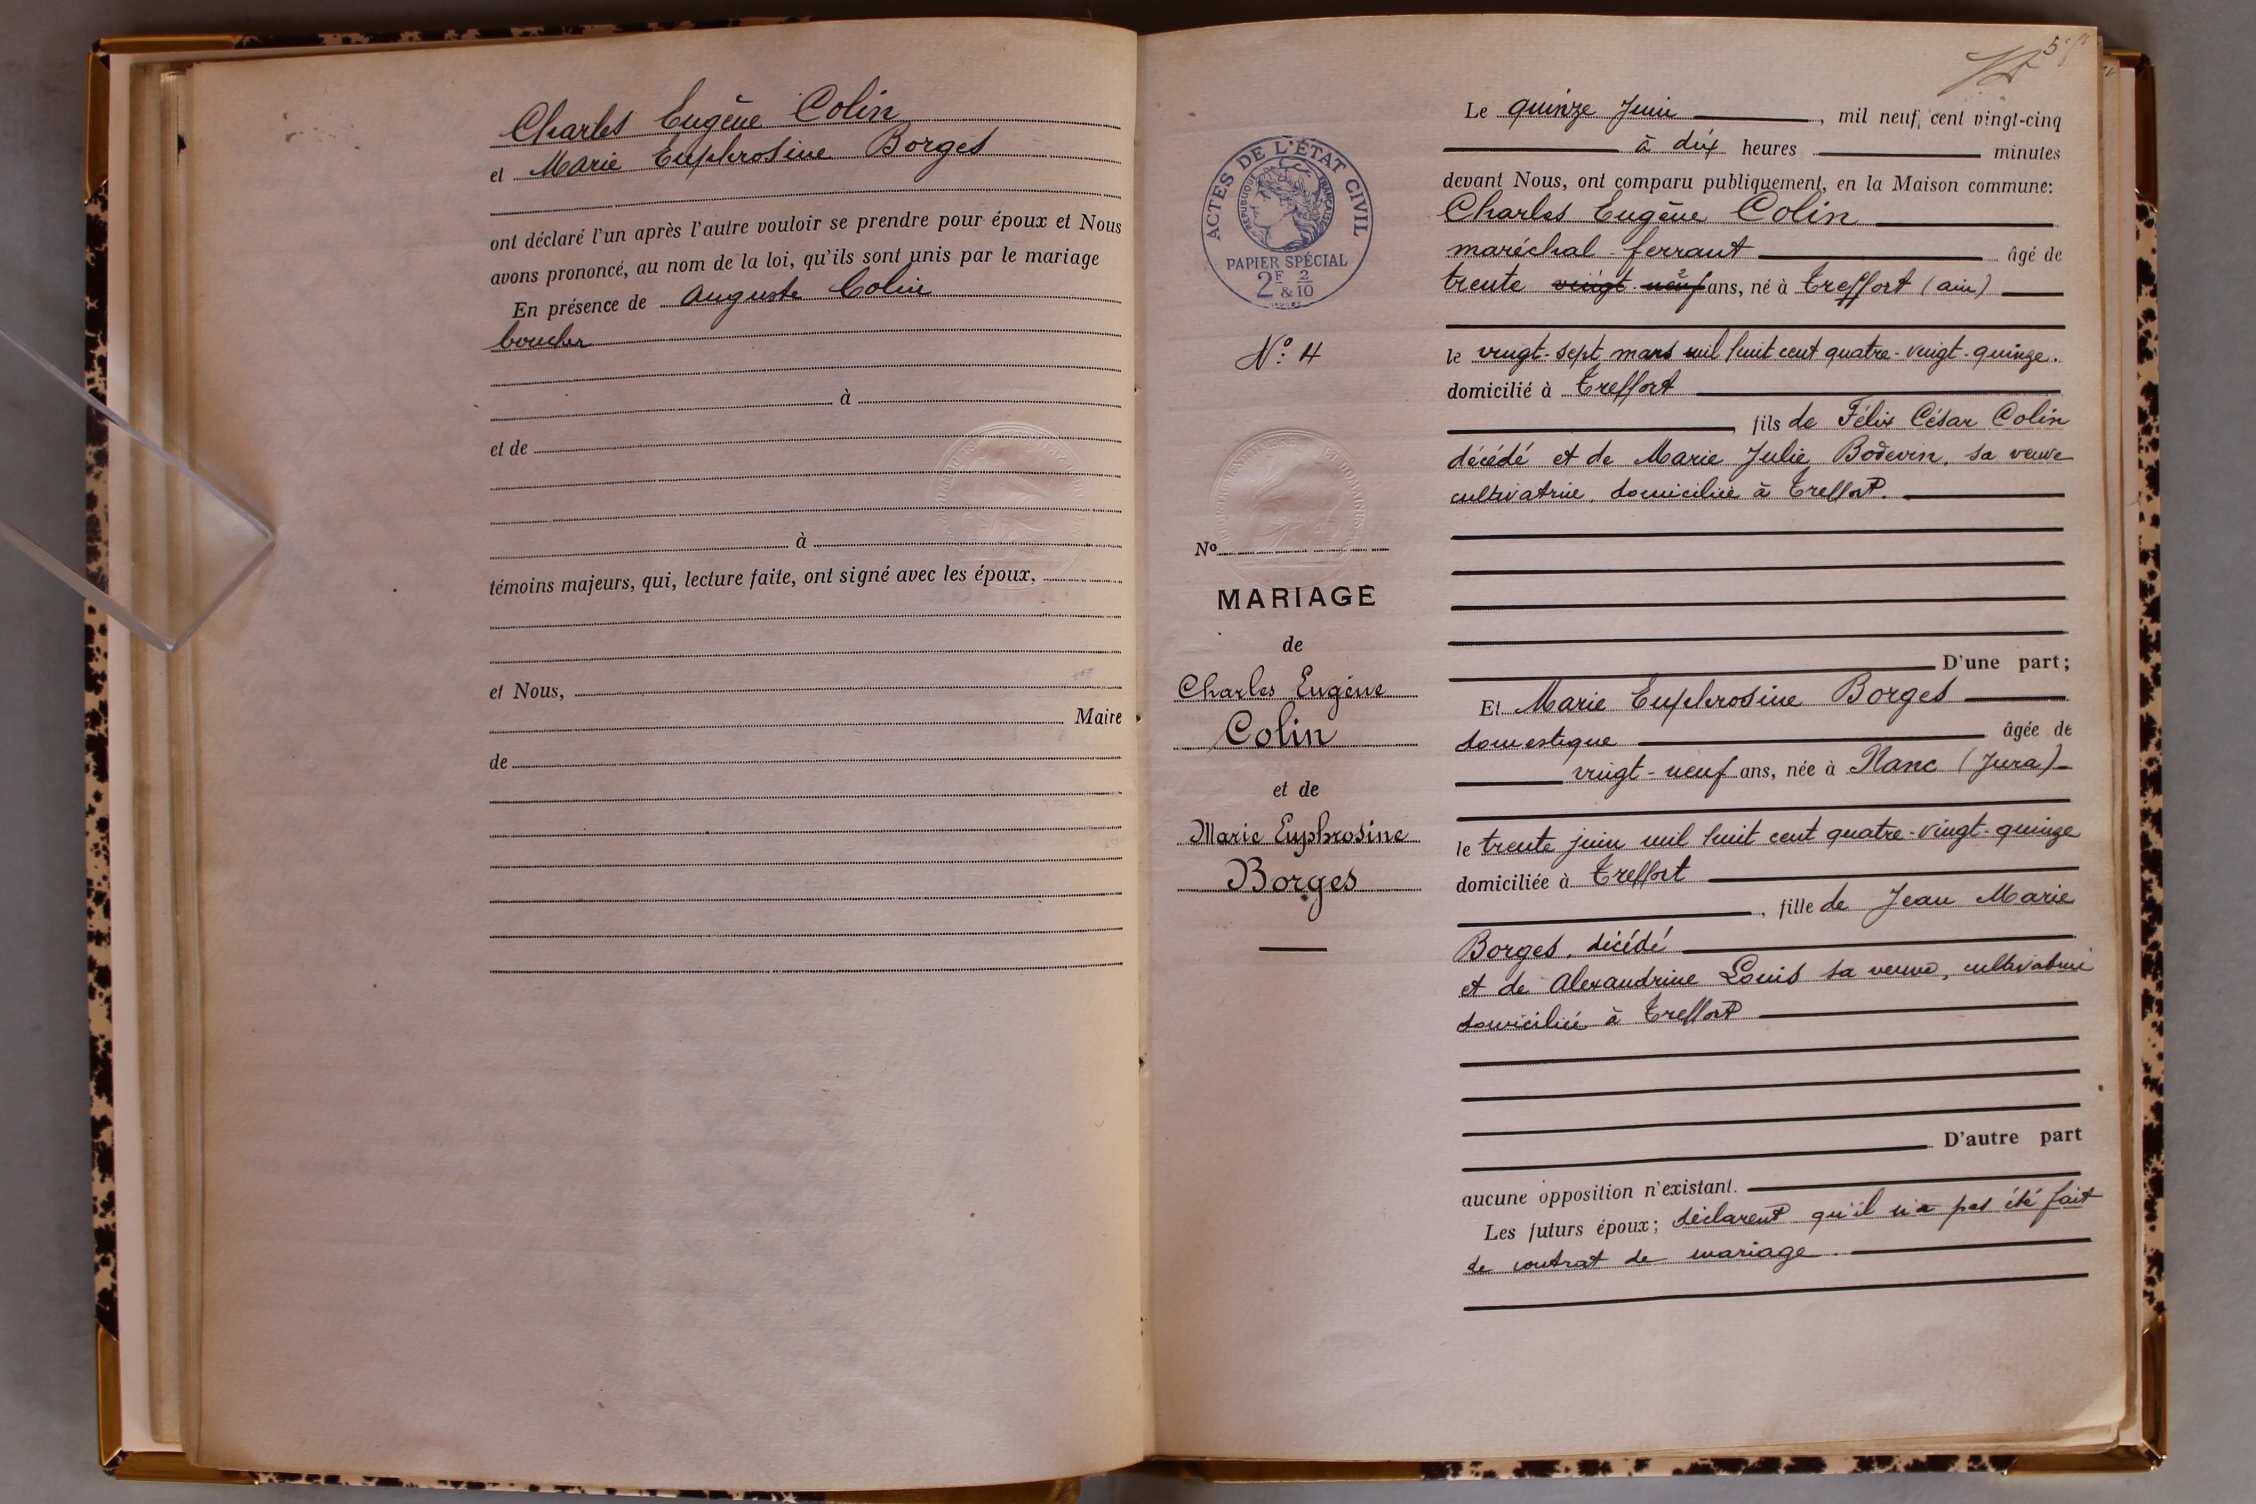 Charles Eugène Colin
et Marie Euphrosine Borges
ont déclaré l'un après l'autre vouloir se prendre pour époux et Nous
avons prononcé, au nom de la loi, qu'ils sont unis par le mariage
En présence de Auguste Colin
boucher
à
et de
à
témoins majeurs, qui, lecture faite, ont signé avec les époux,
et Nous,
Maire
de
5
ACTES DE L'ÉTAT CIVIL
RÉPUBLIQUE FRANÇAISE
PAPIER SPÉCIAL
2F & 2/10
N° 4
No
MARIAGE
de
Charles Eugène
Colin
et de
Marie Euphrosine
Borges
Le quinze Juin, mil neuf cent vingt-cinq
à dix heures minutes
devant Nous, ont comparu publiquement, en la Maison commune:
Charles Eugène Colin
maréchal-ferrant âgé de
trente vingt-neuf ans, né à Treffort (ain)
le vingt-sept mars mil huit cent quatre-vingt-quinze.
domicilié à Treffort
fils de Félix César Colin
décédé et de Marie Julie Bodevin, sa veuve
cultivatrice, domiciliée à Treffort.
D'une part;
Et Marie Euphrosine Borges
domestique âgée de
vingt-neuf ans, née à Nanc (Jura)
le trente juin mil huit cent quatre-vingt-quinze
domiciliée à Treffort
, fille de Jean Marie
Borges, décédé
et de Alexandrine Louis sa veuve, cultivatrice
domiciliée à Treffort
D'autre part
aucune opposition n'existant.
Les futurs époux; déclarent qu'il n'a pas été fait
de contrat de mariage